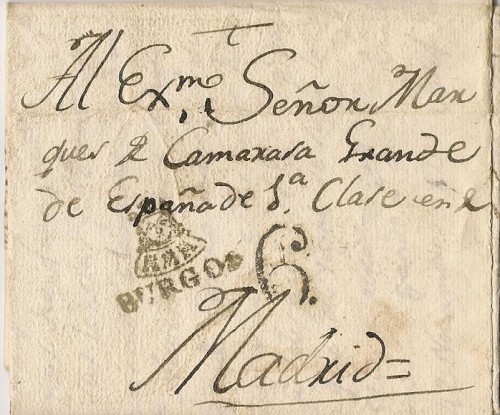 Al Ex.mo Señor Mar
ques de Camarasa Grande
de España de 1.a Clase en
BURGOS
6.
Madrid=